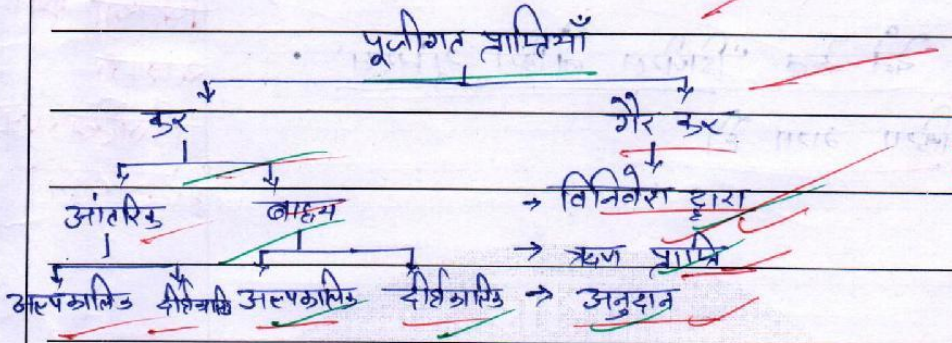 पूंजीगत प्राप्तियाँ
कर गैर कर
आंतरिक बाह्य → विनिवेश द्वारा
→ ऋण प्राप्ति
अल्पकालिक दीर्घकालिक अल्पकालिक दीर्घकालिक → अनुदान